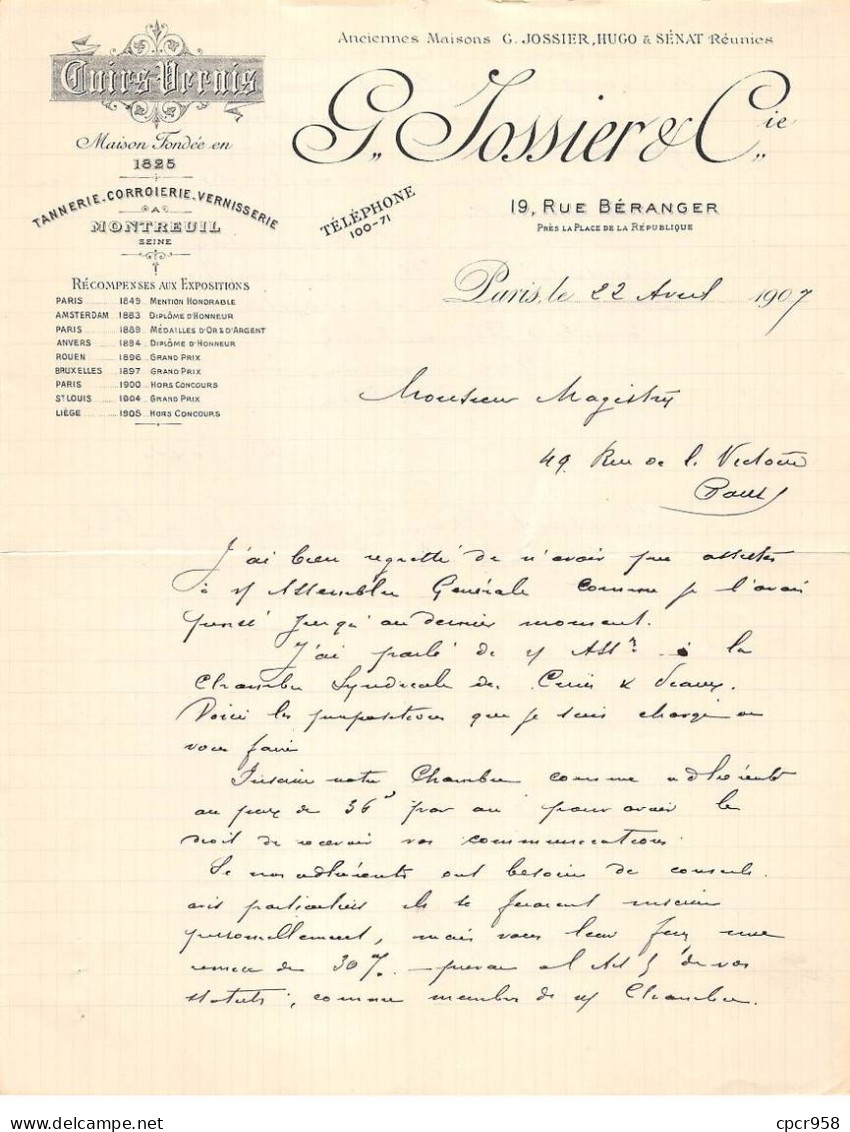 Anciennes Maisons G. JOSSIER, HUGO & SÉNAT Réunies
Cuirs Vernis
G. Jossier & Cie
Maison Fondée en
1825
TANNERIE. CORROIERIE. VERNISSERIE
A
MONTREUIL
SEINE
TÉLÉPHONE
100-71
19, RUE BÉRANGER
PRÈS LA PLACE DE LA RÉPUBLIQUE
RÉCOMPENSES AUX EXPOSITIONS
PARIS 1849 MENTION HONORABLE
AMSTERDAM 1883 DIPLÔME D'HONNEUR
PARIS 1889 MÉDAILLES D'OR & D'ARGENT
ANVERS 1894 DIPLÔME D'HONNEUR
ROUEN 1896 GRAND PRIX
BRUXELLES 1897 GRAND PRIX
PARIS 1900 HORS CONCOURS
ST LOUIS 1904 GRAND PRIX
LIÈGE 1905 HORS CONCOURS
Paris, le 22 Avril 1907
Monsieur
49 Rue de la Victoire
Paris
J'ai bien regretté de n'avoir pu assister
à Assemblée Générale comme je l'avais
pensé jusqu'au dernier moment.
J'ai parlé de à la
Chambre Syndicale des Cuirs & Veaux.
Voici les propositions que je suis chargé de
vous faire
Inscrire notre Chambre comme adhérente
au prix de 36 par an pour avoir le
droit de recevoir vos communications.
Si nos adhérents ont besoin de conseils
particuliers ils se feraient inscrire
personnellement, mais vous leur une
remise de 30% de vos
statuts, comme membres de Chambre.
cpcr958